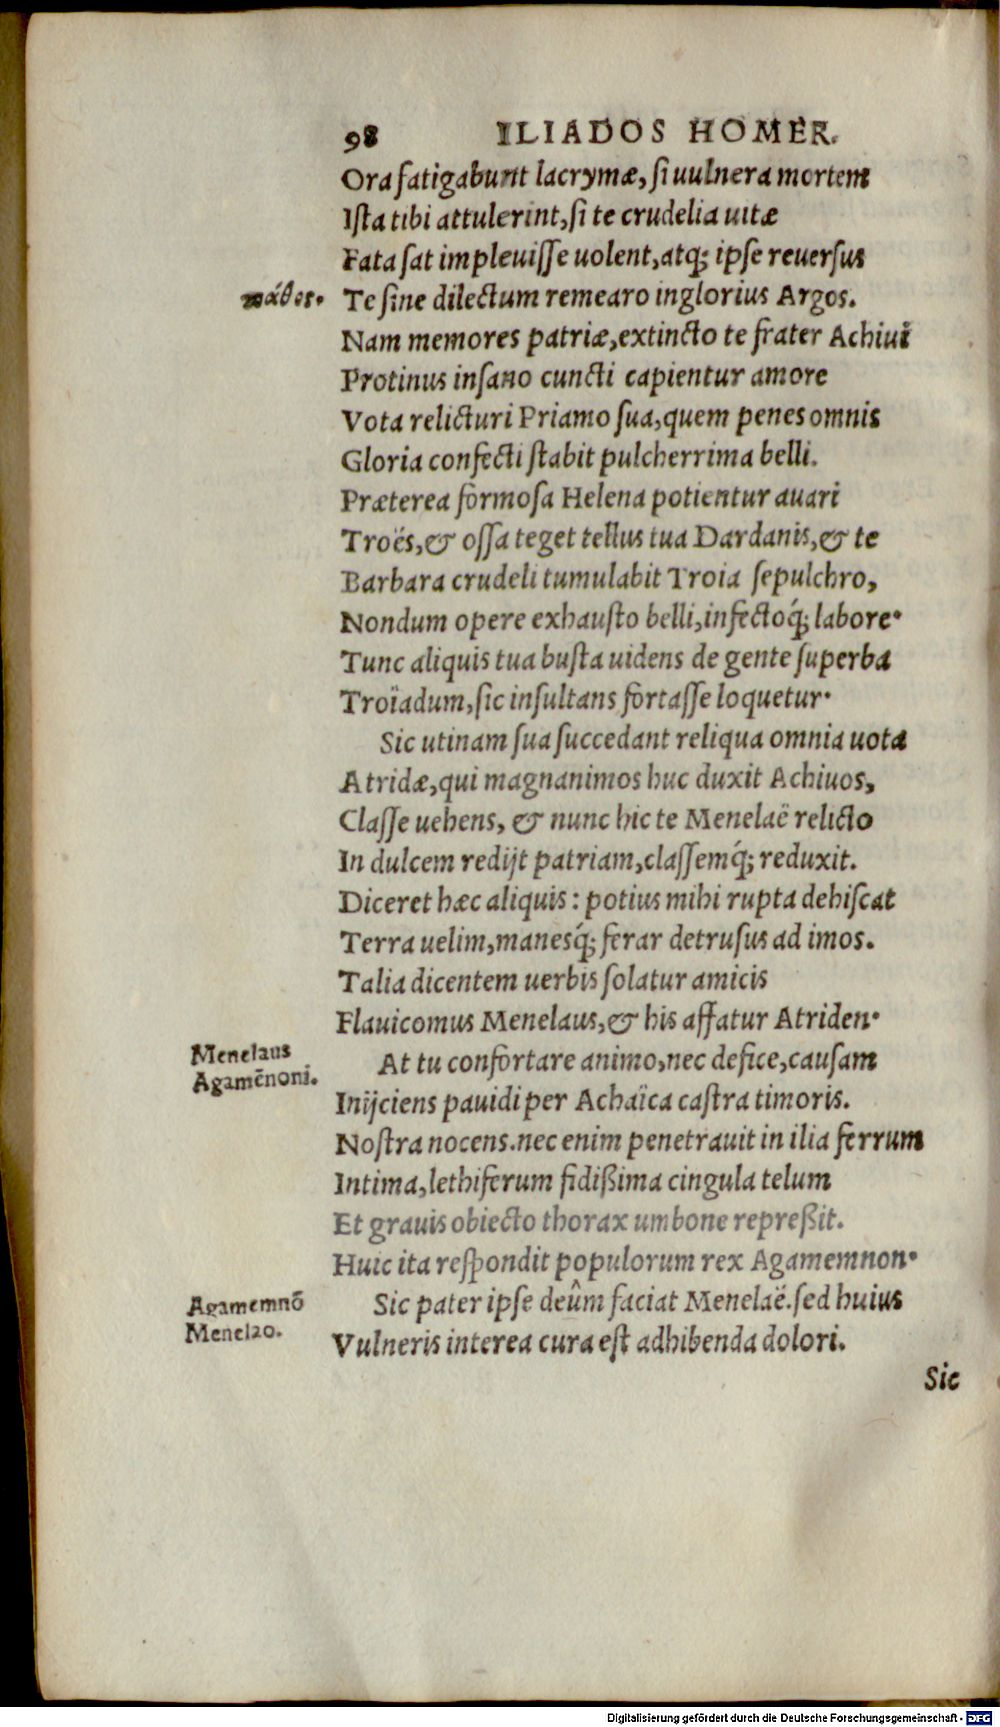 98 ILIADOS HOMER.
Ora fatigabunt lacrymæ, si uulnera mortem
Ista tibi attulerint, si te crudelia uitæ
Fata sat impleuisse uolent, atq; ipse reuersus
πάθος. Te sine dilectum remearo inglorius Argos.
Nam memores patriæ, extincto te frater Achiui
Protinus insano cuncti capientur amore
Vota relicturi Priamo sua, quem penes omnis
Gloria confecti stabit pulcherrima belli.
Præterea formosa Helena potientur auari
Troës, & ossa teget tellus tua Dardanis, & te
Barbara crudeli tumulabit Troia sepulchro,
Nondum opere exhausto belli, infectoq́; labore.
Tunc aliquis tua busta uidens de gente superba
Troïadum, sic insultans fortasse loquetur.
Sic utinam sua succedant reliqua omnia uota
Atridæ, qui magnanimos huc duxit Achiuos,
Classe uehens, & nunc hic te Menelaë relicto
In dulcem redijt patriam, classemq́; reduxit.
Diceret hæc aliquis: potius mihi rupta dehiscat
Terra uelim, manesq́; ferar detrusus ad imos.
Talia dicentem uerbis solatur amicis
Flauicomus Menelaus, & his affatur Atriden.
Menelaus At tu confortare animo, nec defice, causam
Agamēnoni. Inijciens pauidi per Achaïca castra timoris.
Nostra nocens. nec enim penetrauit in ilia ferrum
Intima, lethiferum fidißima cingula telum
Et grauis obiecto thorax umbone repreßit.
Huic ita respondit populorum rex Agamemnon.
Agamemnō Sic pater ipse deûm faciat Menelaë. sed huius
Menelao. Vulneris interea cura est adhibenda dolori.
Sic
Digitalisierung gefördert durch die Deutsche Forschungsgemeinschaft - DFG